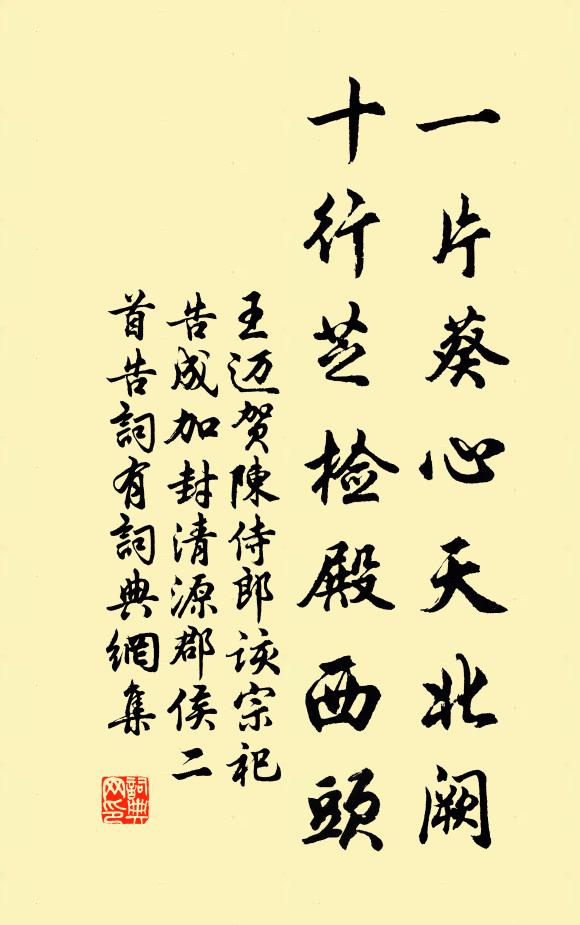 一片葵心天北阙
十行芝检殿西頭
王迈贺陳侍郎該宗祀
告成加封清源郡侯二
首告詞有詞典網集
詞典
网印